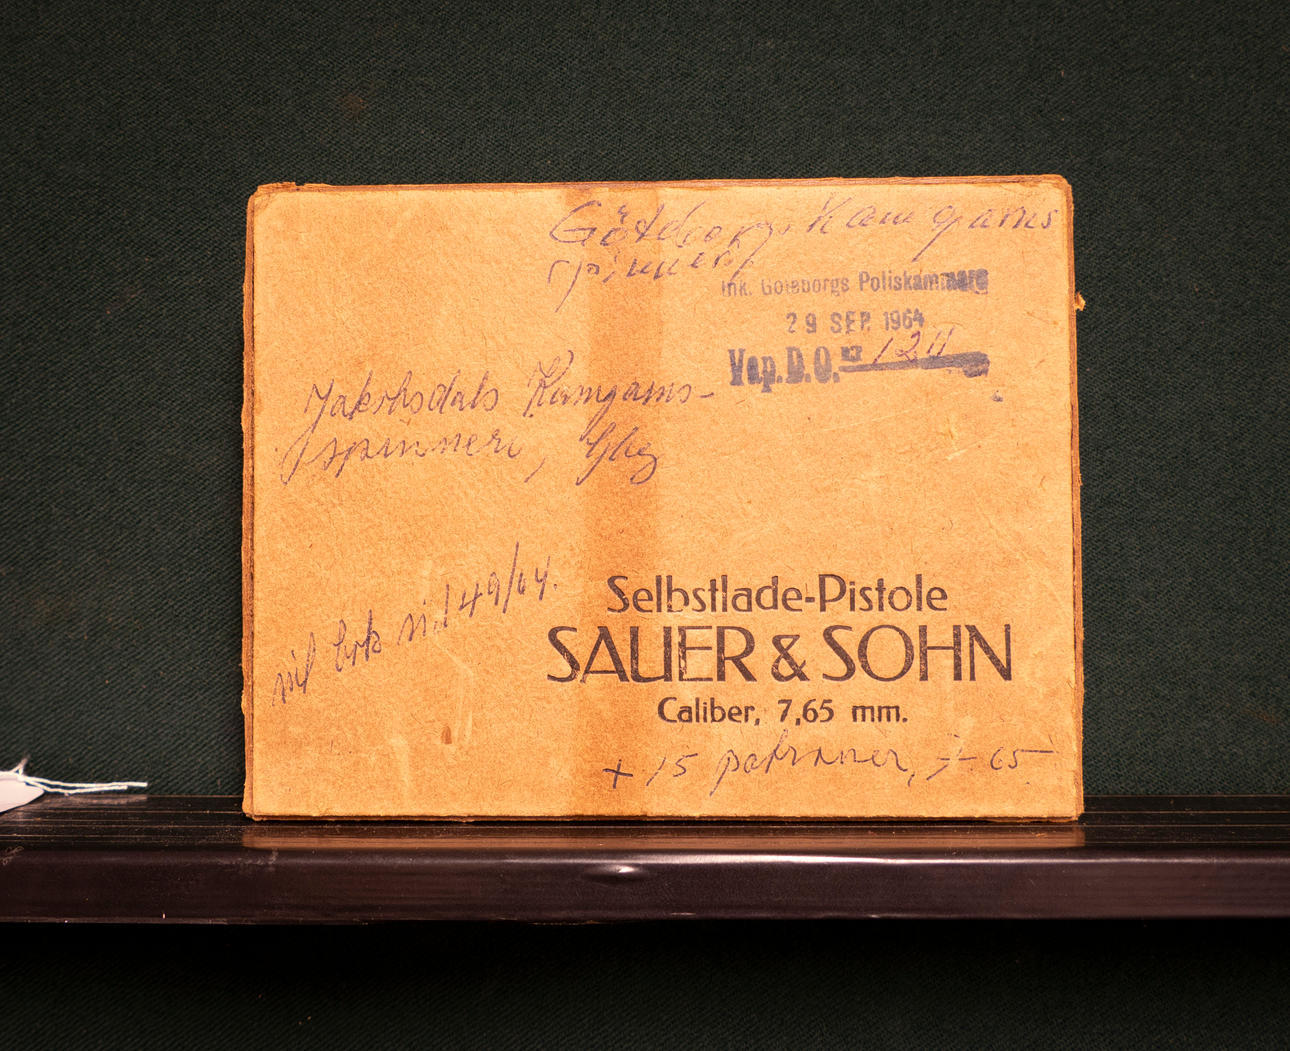 Göteborgs Kamgarns
spinneri
Ink. Göteborgs Poliskammare
29 SEP. 1964
Vap.D.O. nr
Jakobsdals Kamgarns-
spinneri, Gbg
49/64.
Selbstlade-Pistole
SAUER & SOHN
Caliber, 7,65 mm.
+ 15 patroner, 7.65